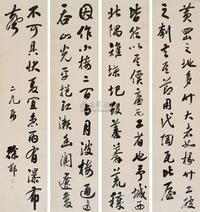 黃岡之地多竹大者如椽竹工破
之刳去其節用代陶瓦比屋
皆然以其價廉而工省也予城西
北隅雉堞圮毀蓁莽荒穢
因作小樓二間與月波樓通遠
吞山光平挹江瀨幽闃遼夐
不可具狀夏宜急雨有瀑布
聲
徐郙